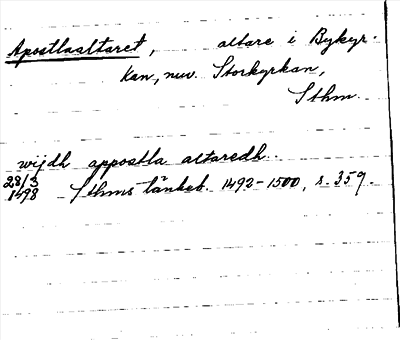 Apostlaaltaret, altare i Bykyr-
kan, nuv. Storkyrkan,
Sthm.
wijdh appostla altaredh.
28/3 1498 Sthms tänkeb. 1492-1500, s. 359.